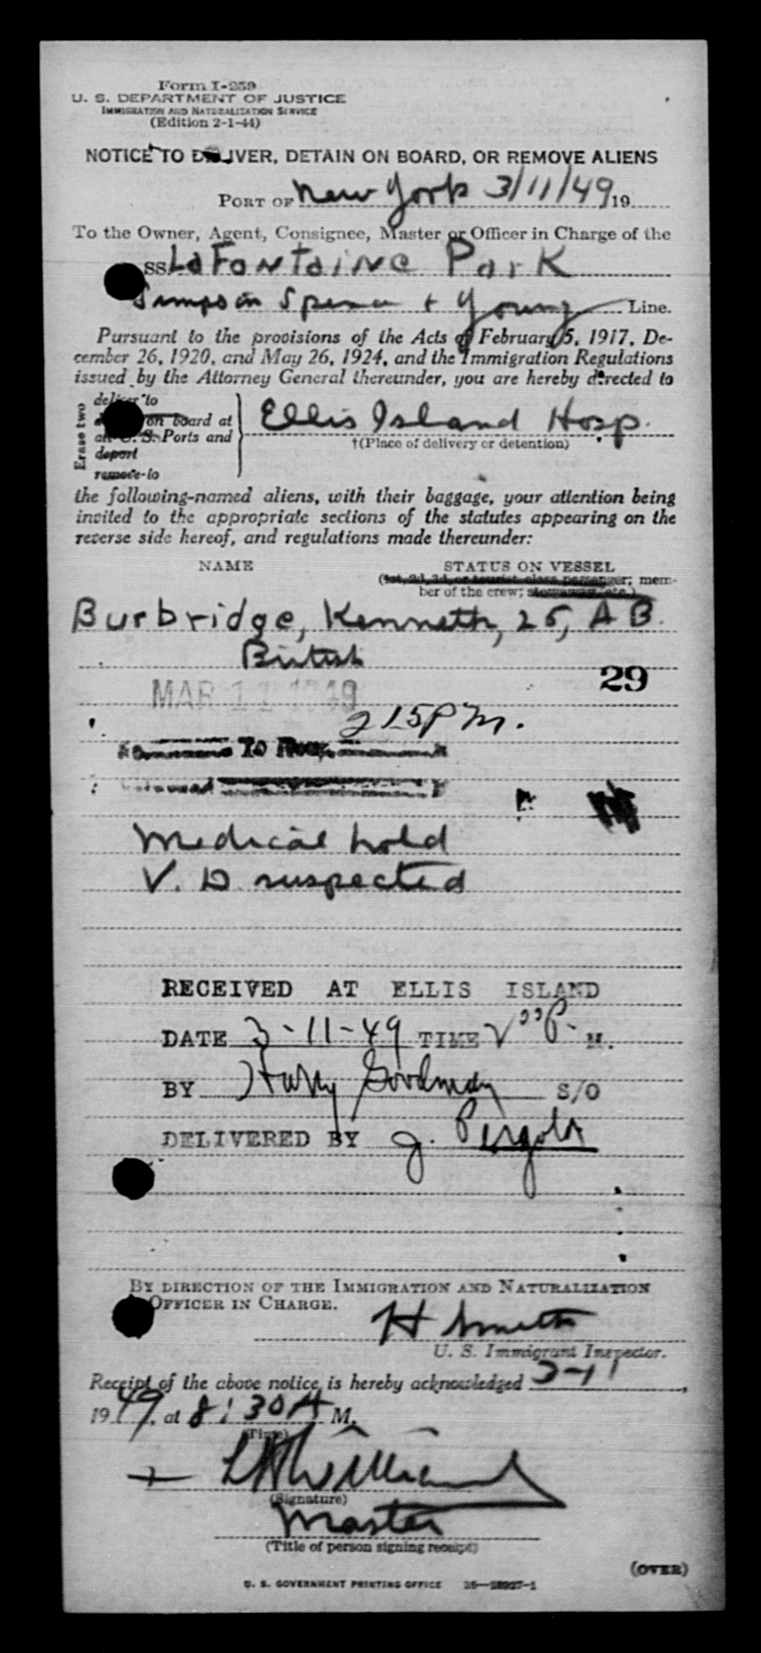 Form I-259
U. S. DEPARTMENT OF JUSTICE
IMMIGRATION AND NATURALIZATION SERVICE
(Edition 2-1-44)
NOTICE TO DELIVER, DETAIN ON BOARD, OR REMOVE ALIENS
PORT OF New York 3/11/49 19
To the Owner, Agent, Consignee, Master or Officer in Charge of the
SS La Fontaine Park
Simpson Spence + Young Line.
Pursuant to the provisions of the Acts of February 5, 1917, De-
cember 26, 1920, and May 26, 1924, and the Immigration Regulations
issued by the Attorney General thereunder, you are hereby directed to
Erase two
deliver to
on board at
U. S. Ports and
deport
remove to
Ellis Island Hosp.
†(Place of delivery or detention)
the following-named aliens, with their baggage, your attention being
invited to the appropriate sections of the statutes appearing on the
reverse side hereof, and regulations made thereunder:
NAME STATUS ON VESSEL
(1st, 2d, 3d, or tourist class passenger; mem-
ber of the crew; stowaway, etc.)
Burbridge, Kenneth, 25, AB.
British
29
MAR 11 1949
215 PM.
TO
Medical hold
V. D. suspected
RECEIVED AT ELLIS ISLAND
DATE 3-11-49 TIME P. M.
BY Harry Goodman S/O
DELIVERED BY J.
BY DIRECTION OF THE IMMIGRATION AND NATURALIZATION
OFFICER IN CHARGE.
H Smith
U. S. Immigrant Inspector.
Receipt of the above notice is hereby acknowledged 3-11,
1949, at 8:30 A M.
(Time)
(Signature)
Master
(Title of person signing receipt)
(OVER)
U. S. GOVERNMENT PRINTING OFFICE 16—28927-1